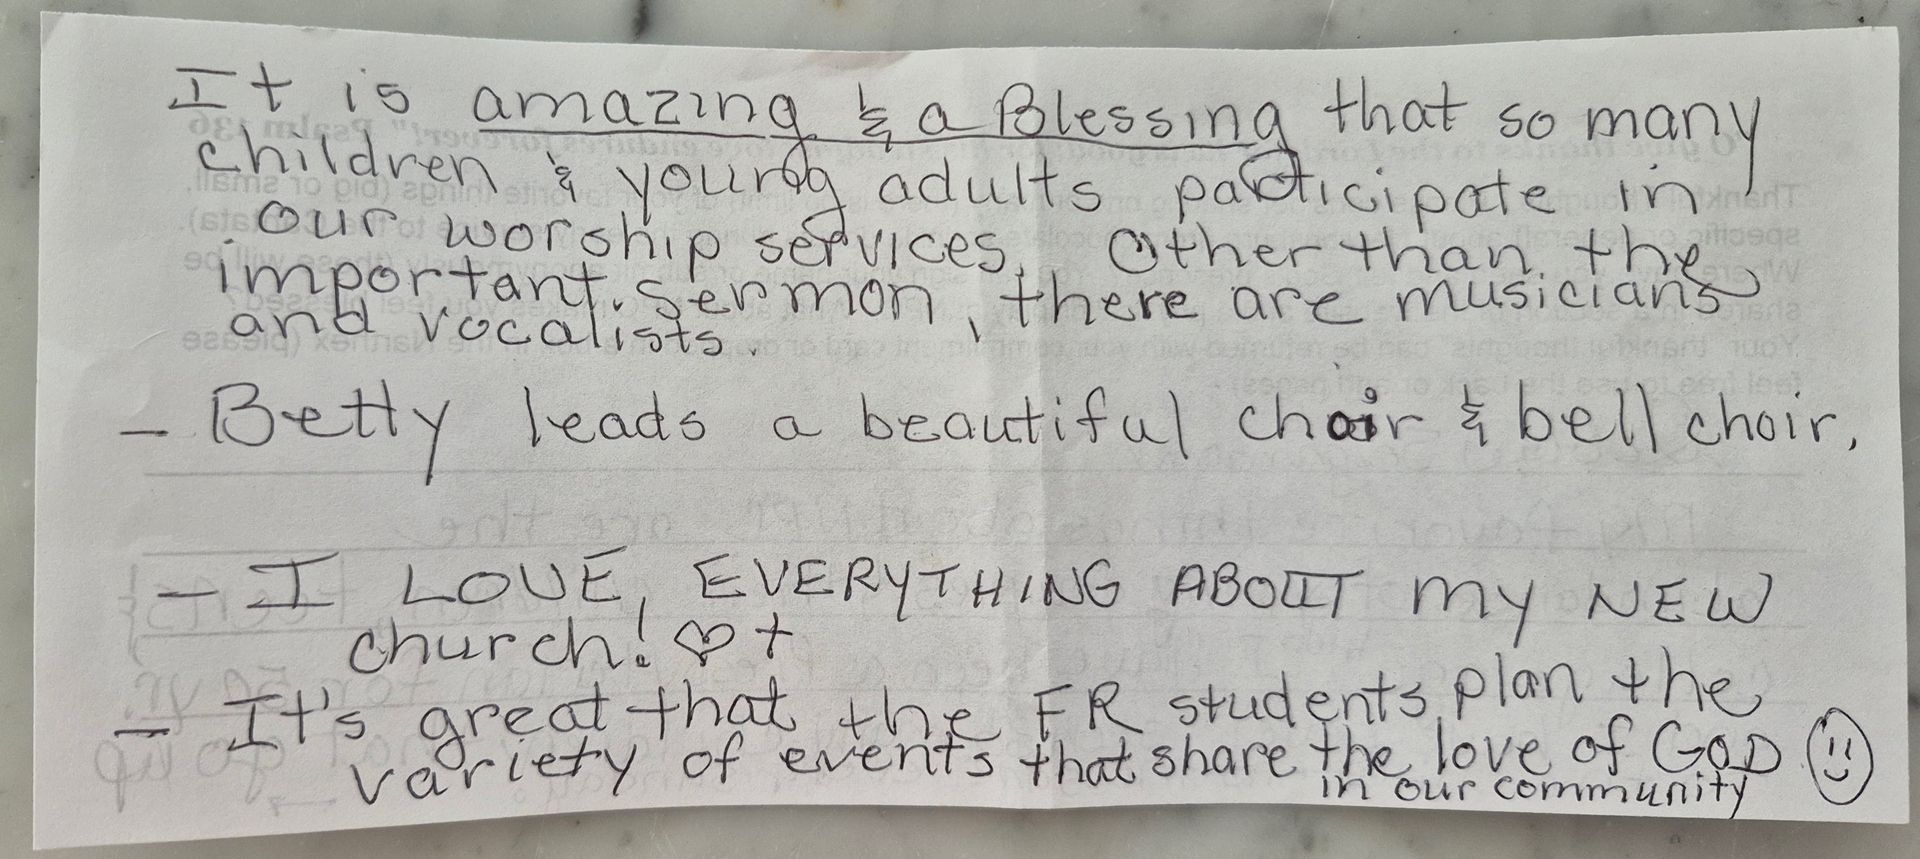 It is amazing & a Blessing that so many
children & young adults participate in
our worship services. Other than the
important sermon, there are musicians
and vocalists.
- Betty leads a beautiful choir & bell choir.
- I LOVE, EVERYTHING ABOUT my NEW
church! ♡ +
- It's great that the FR students plan the
variety of events that share the love of GOD
in our community